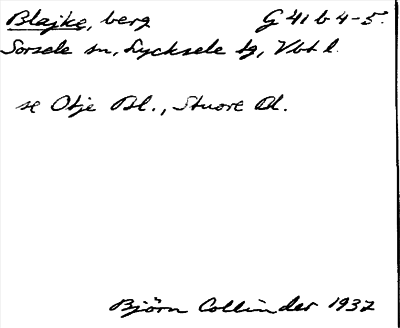 Blajke, berg G 41 b 4-5.
Sorsele sn, Lycksele tg, Vbt l.
se Otje Bl., Stuore Bl.
Björn Collinder 1937